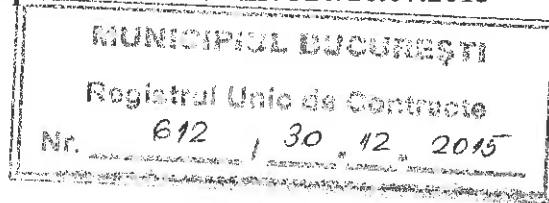 MUNICIPIUL BUCUREŞTI
Registrul Unic de Contracte
Nr. 612 / 30 . 12 . 2015